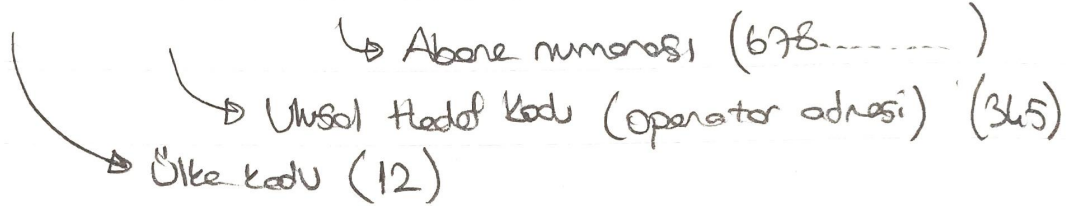 ↳ Abone numarası (678.............)
↳ Ulusal Hedef Kodu (operator adresi) (345)
↳ Ülke kodu (12)